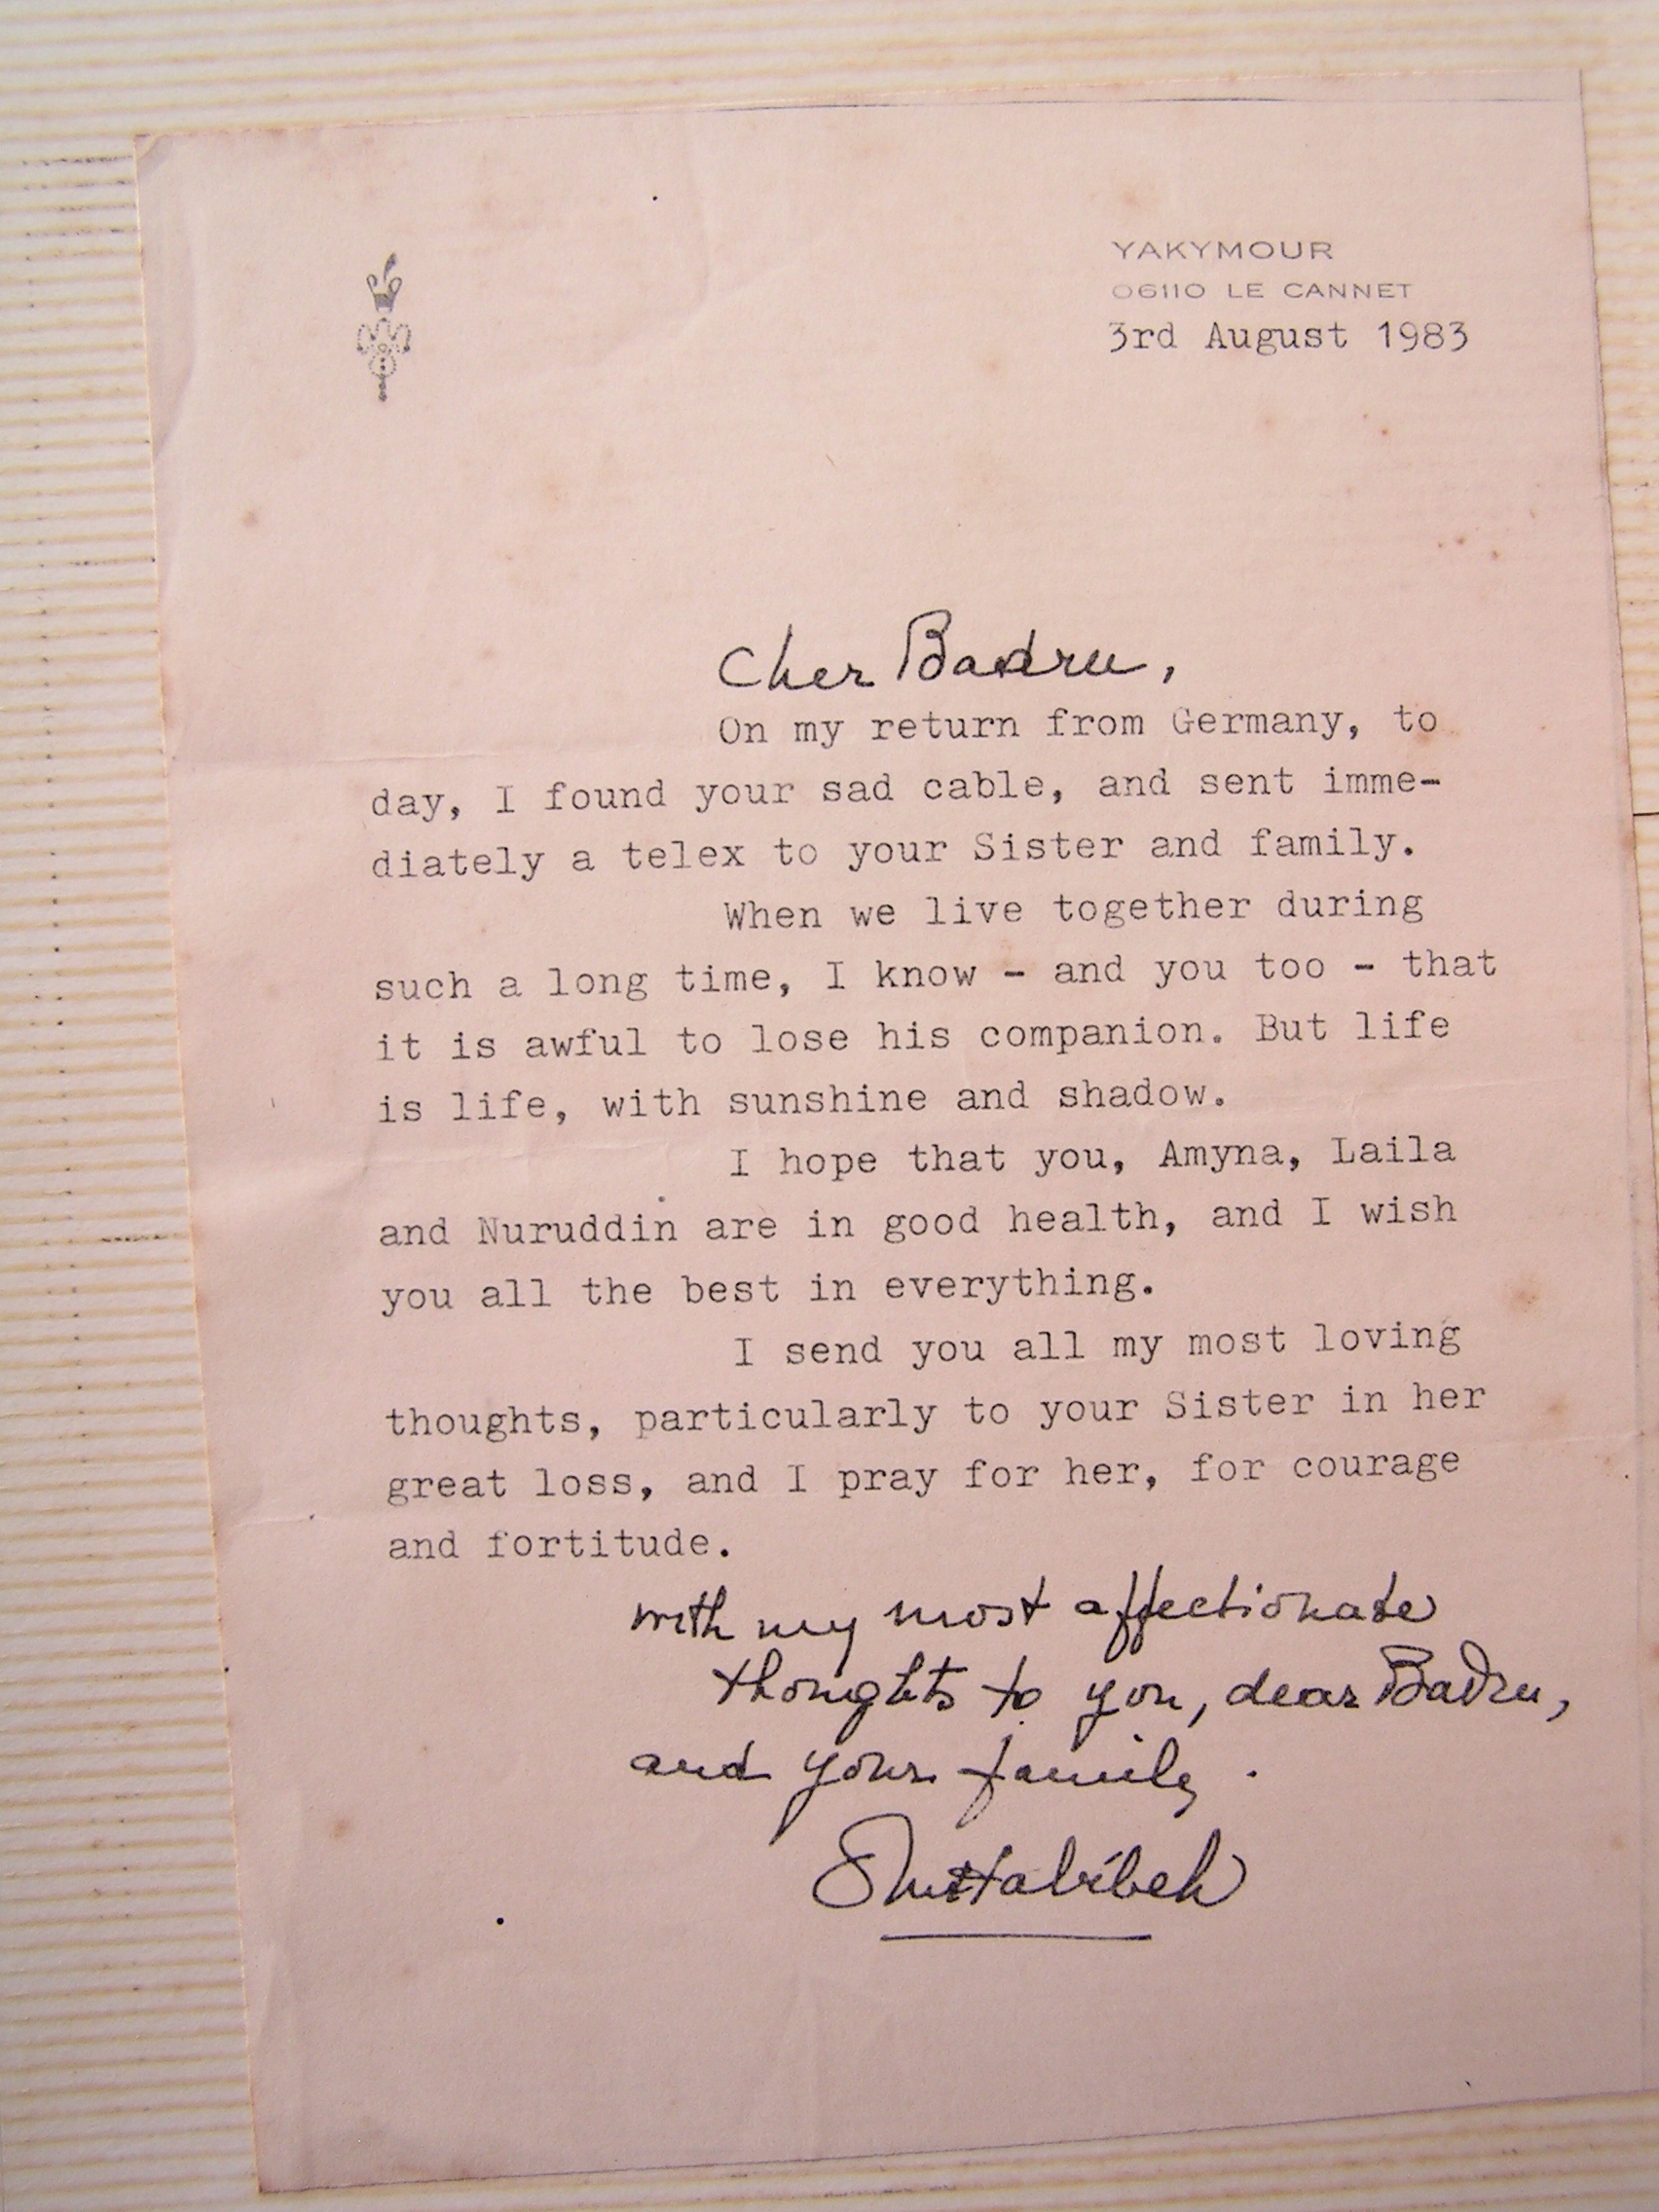 YAKYMOUR
06110 LE CANNET
3rd August 1983
Cher Badru,
On my return from Germany, to
day, I found your sad cable, and sent imme-
diately a telex to your Sister and family.
When we live together during
such a long time, I know - and you too - that
it is awful to lose his companion. But life
is life, with sunshine and shadow.
I hope that you, Amyna, Laila
and Nuruddin are in good health, and I wish
you all the best in everything.
I send you all my most loving
thoughts, particularly to your Sister in her
great loss, and I pray for her, for courage
and fortitude.
with my most affectionate
thoughts to you, dear Badru,
and your family.